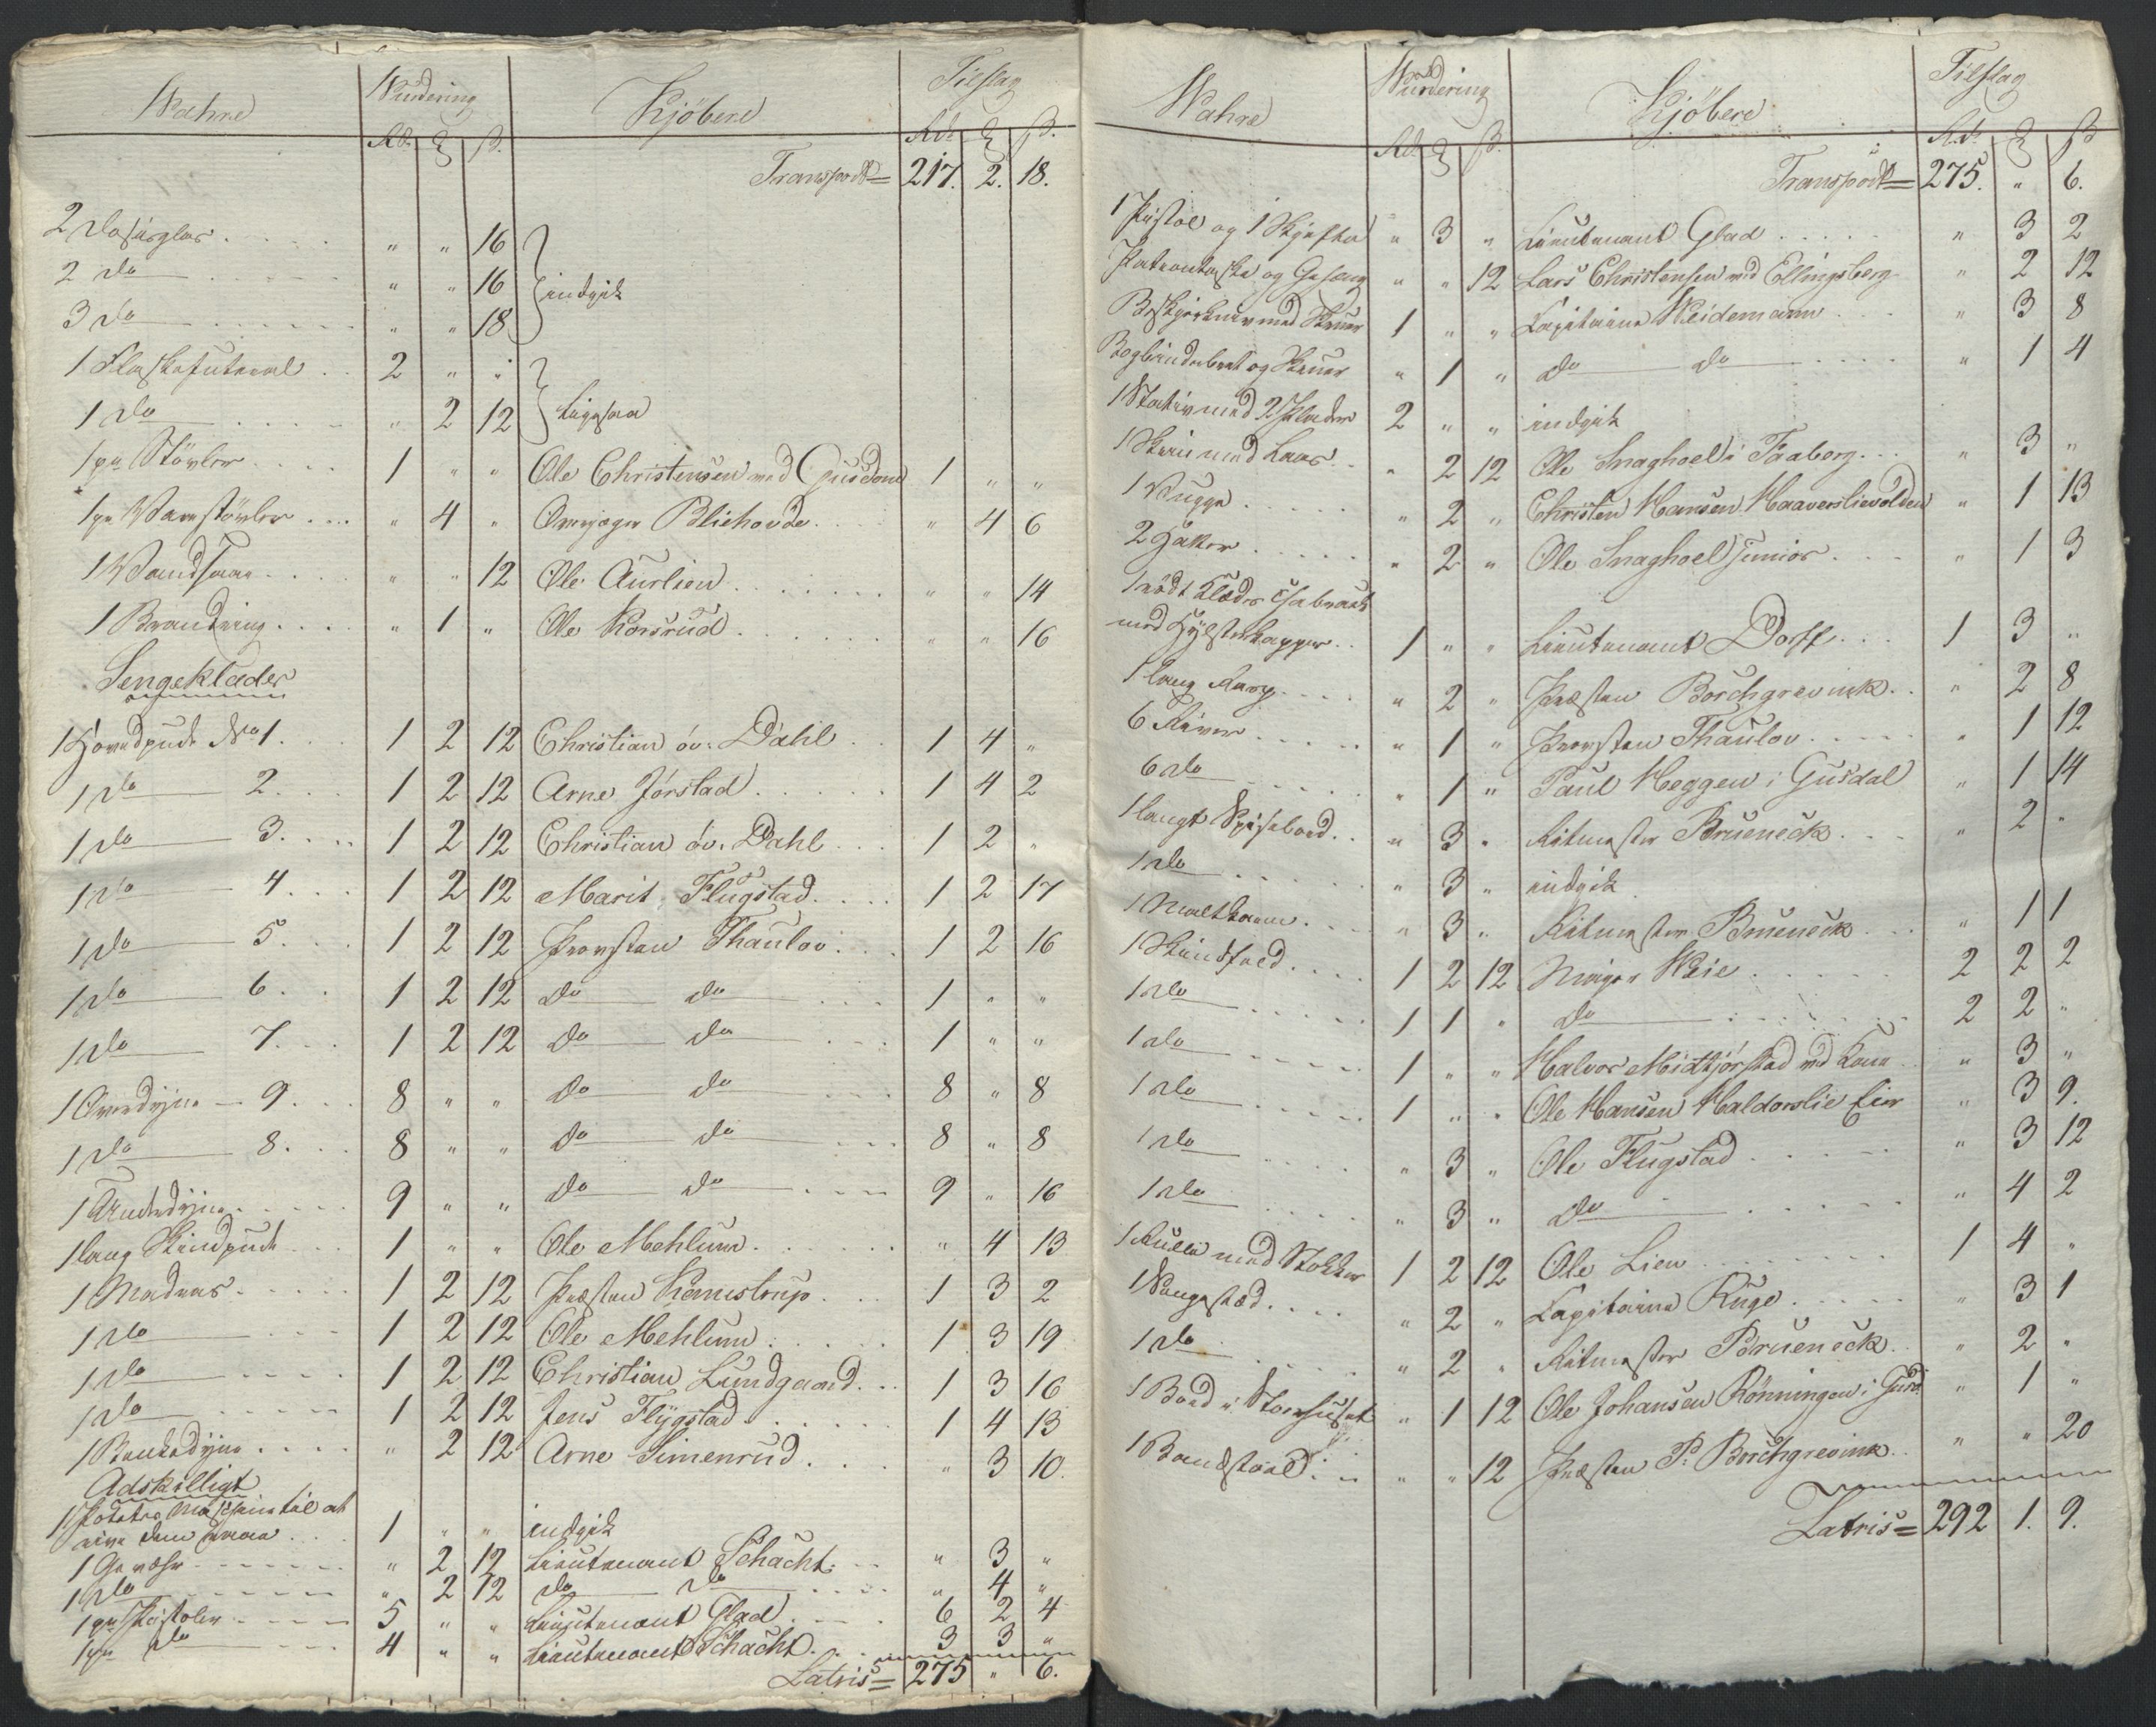 Wahre Wurdering Kjöbere Tilslag
Rd. ß. Rd. ß.
Transport = 217. 2. 18.
2 " " 16
2 do " " 16 indgik
3 do " " 18
1 Flaskefuteral 2 " "
1 do " 2 12 Ligesaa
1 pr Stövler 1 " " Ole Christensen ved Gusdal 1 " "
1 pr Vandstövler " 4 " Overjæger Bliehovde " 4 6
1 " " 12 Ole Aurlien " " 14
1 Brandring " 1 " Ole Korsrud " " 16
Sengeklæder
1 Hovedpude No 1. 1 2 12 Christian öv. Dahl 1 4 "
1 do 2. 1 2 12 Arne Jörstad 1 4 2
1 do 3. 1 2 12 Christian öv. Dahl 1 2 "
1 do 4. 1 2 12 Marit Flugstad 1 2 17
1 do 5. 1 2 12 Provsten Thaulov 1 2 16
1 do 6. 1 2 12 do do 1 " "
1 do 7. 1 2 12 do do 1 " "
1 Overdyne 9. 8 " " do do 8 " 8
1 do 8. 8 " " do do 8 " 8
1 Underdyne 9 " " do do 9 " 16
1 lang Skindpude 1 " " Ole Mehlum " 4 13
1 Madras 1 2 12 Præsten Kemstrup 1 3 2
1 do 1 2 12 Ole Mehlum 1 3 19
1 do 1 2 12 Christian Lundgaard 1 3 16
1 do 1 2 12 Jens Flygstad 1 4 13
1 Benkedyne " 2 12 Arne Simenrud " 3 10.
Adskilligt
1 Potetes Maschine til at
rive dem 1 " " indgik
1 Gevæhr " 2 12 Lieutenant Schacht " 3 "
1 do " 2 12 do do " 4 "
1 pr Pistoler 5 " " Lieutenant Glad 6 2 4
1 pr do 4 " " Lieutenant Schacht 3 3 "
Latris = 275 " 6.
Wahre Wurdering Kjöbere Tilslag
Rd. ß. Rd. ß
Transport = 275. " 6.
1 Pistol og 1 Skjefte " 3 " Lieutenant Glad " 3 2
Patrontaske og " " 12 Lars Christensen ved Ellingsberg " 2 12
med Skruer 1 " " Capitaine Weidemann " 3 8
Bogbinderbret og Skruer " 1 " do do " 1 4
1 Stativ med 2 Plader 2 " " indgik
1 Skrin med Laas " 2 12 Ole Snaghoel i Faaberg " 3 "
1 Vugge " 2 " Christen Hansen Haaverslievolden " 1 13
2 " 2 " Ole Snaghoel Junior " 1 3
1 rödt Klædes
med Hylsterkapper 1 " " Lieutenant Dorff 1 3 "
1 lang " 2 " Præsten Borchgrevink " 2 8
6 River " 1 " Provsten Thaulov " 1 12
6 do " 1 " Paul Heggen i Gusdal " 1 14
1 langt Spisebord " 3 " Ritmester Brueneck " 2 "
1 do " 3 " indgik
1 " 3 " Ritmester Brueneck " 1 1
1 Skindfeld 1 2 12 Major Weie 2 2 2
1 do 1 1 " do 2 2 "
1 do 1 " " Halvor Midtjörstad ved " 3 "
1 do 1 " " Ole Hansen Haldorslie Eier " 3 9.
1 do " 3 " Ole Flugstad " 3 12
1 do " 3 " do " 4 2
1 Rulle med Stokker 1 2 12 Ole Lien 1 4 "
1 Sengested " 2 " Capitaine Kuge " 3 1
1 do " 2 " Ritmester Brueneck " 2 "
1 Bord i Storhuset " 1 12 Ole Johansen Rönningen i " 1 "
1 " " 12 Præsten P. Borchgrevink " " 20
Latris = 292 1. 9.